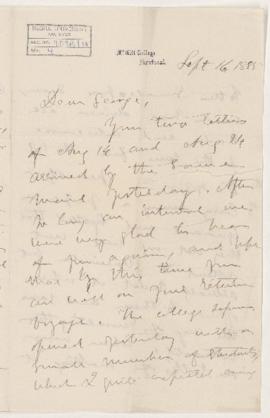 McGill College
Montreal
Sept 16 1885
Dear George,
Your two letters
of Aug 14 and Aug 24
arrived by the same
mail yesterday. After
so long an interval we
were very glad to hear
of you again, and hope
that by this time you
are well on your return
voyage. The college
opened yesterday with a
number of students
which I quite expected